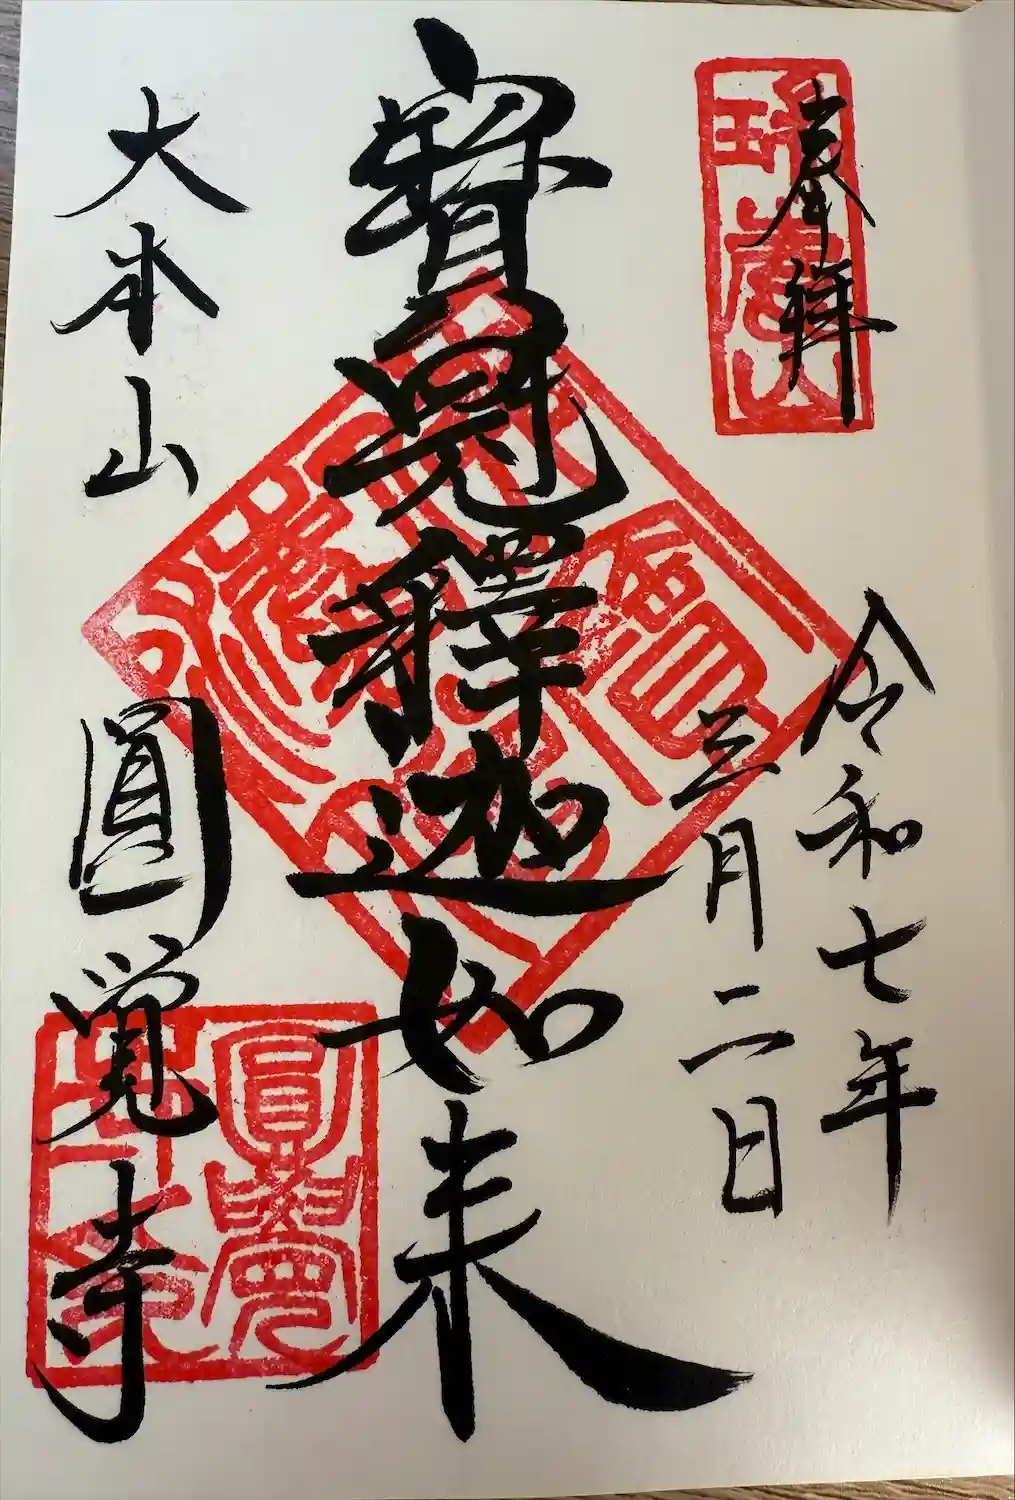 奉拝
瑞鹿山
令和七年
三月二日
寳冠釋迦如来
大本山
圓覚寺
圓覺